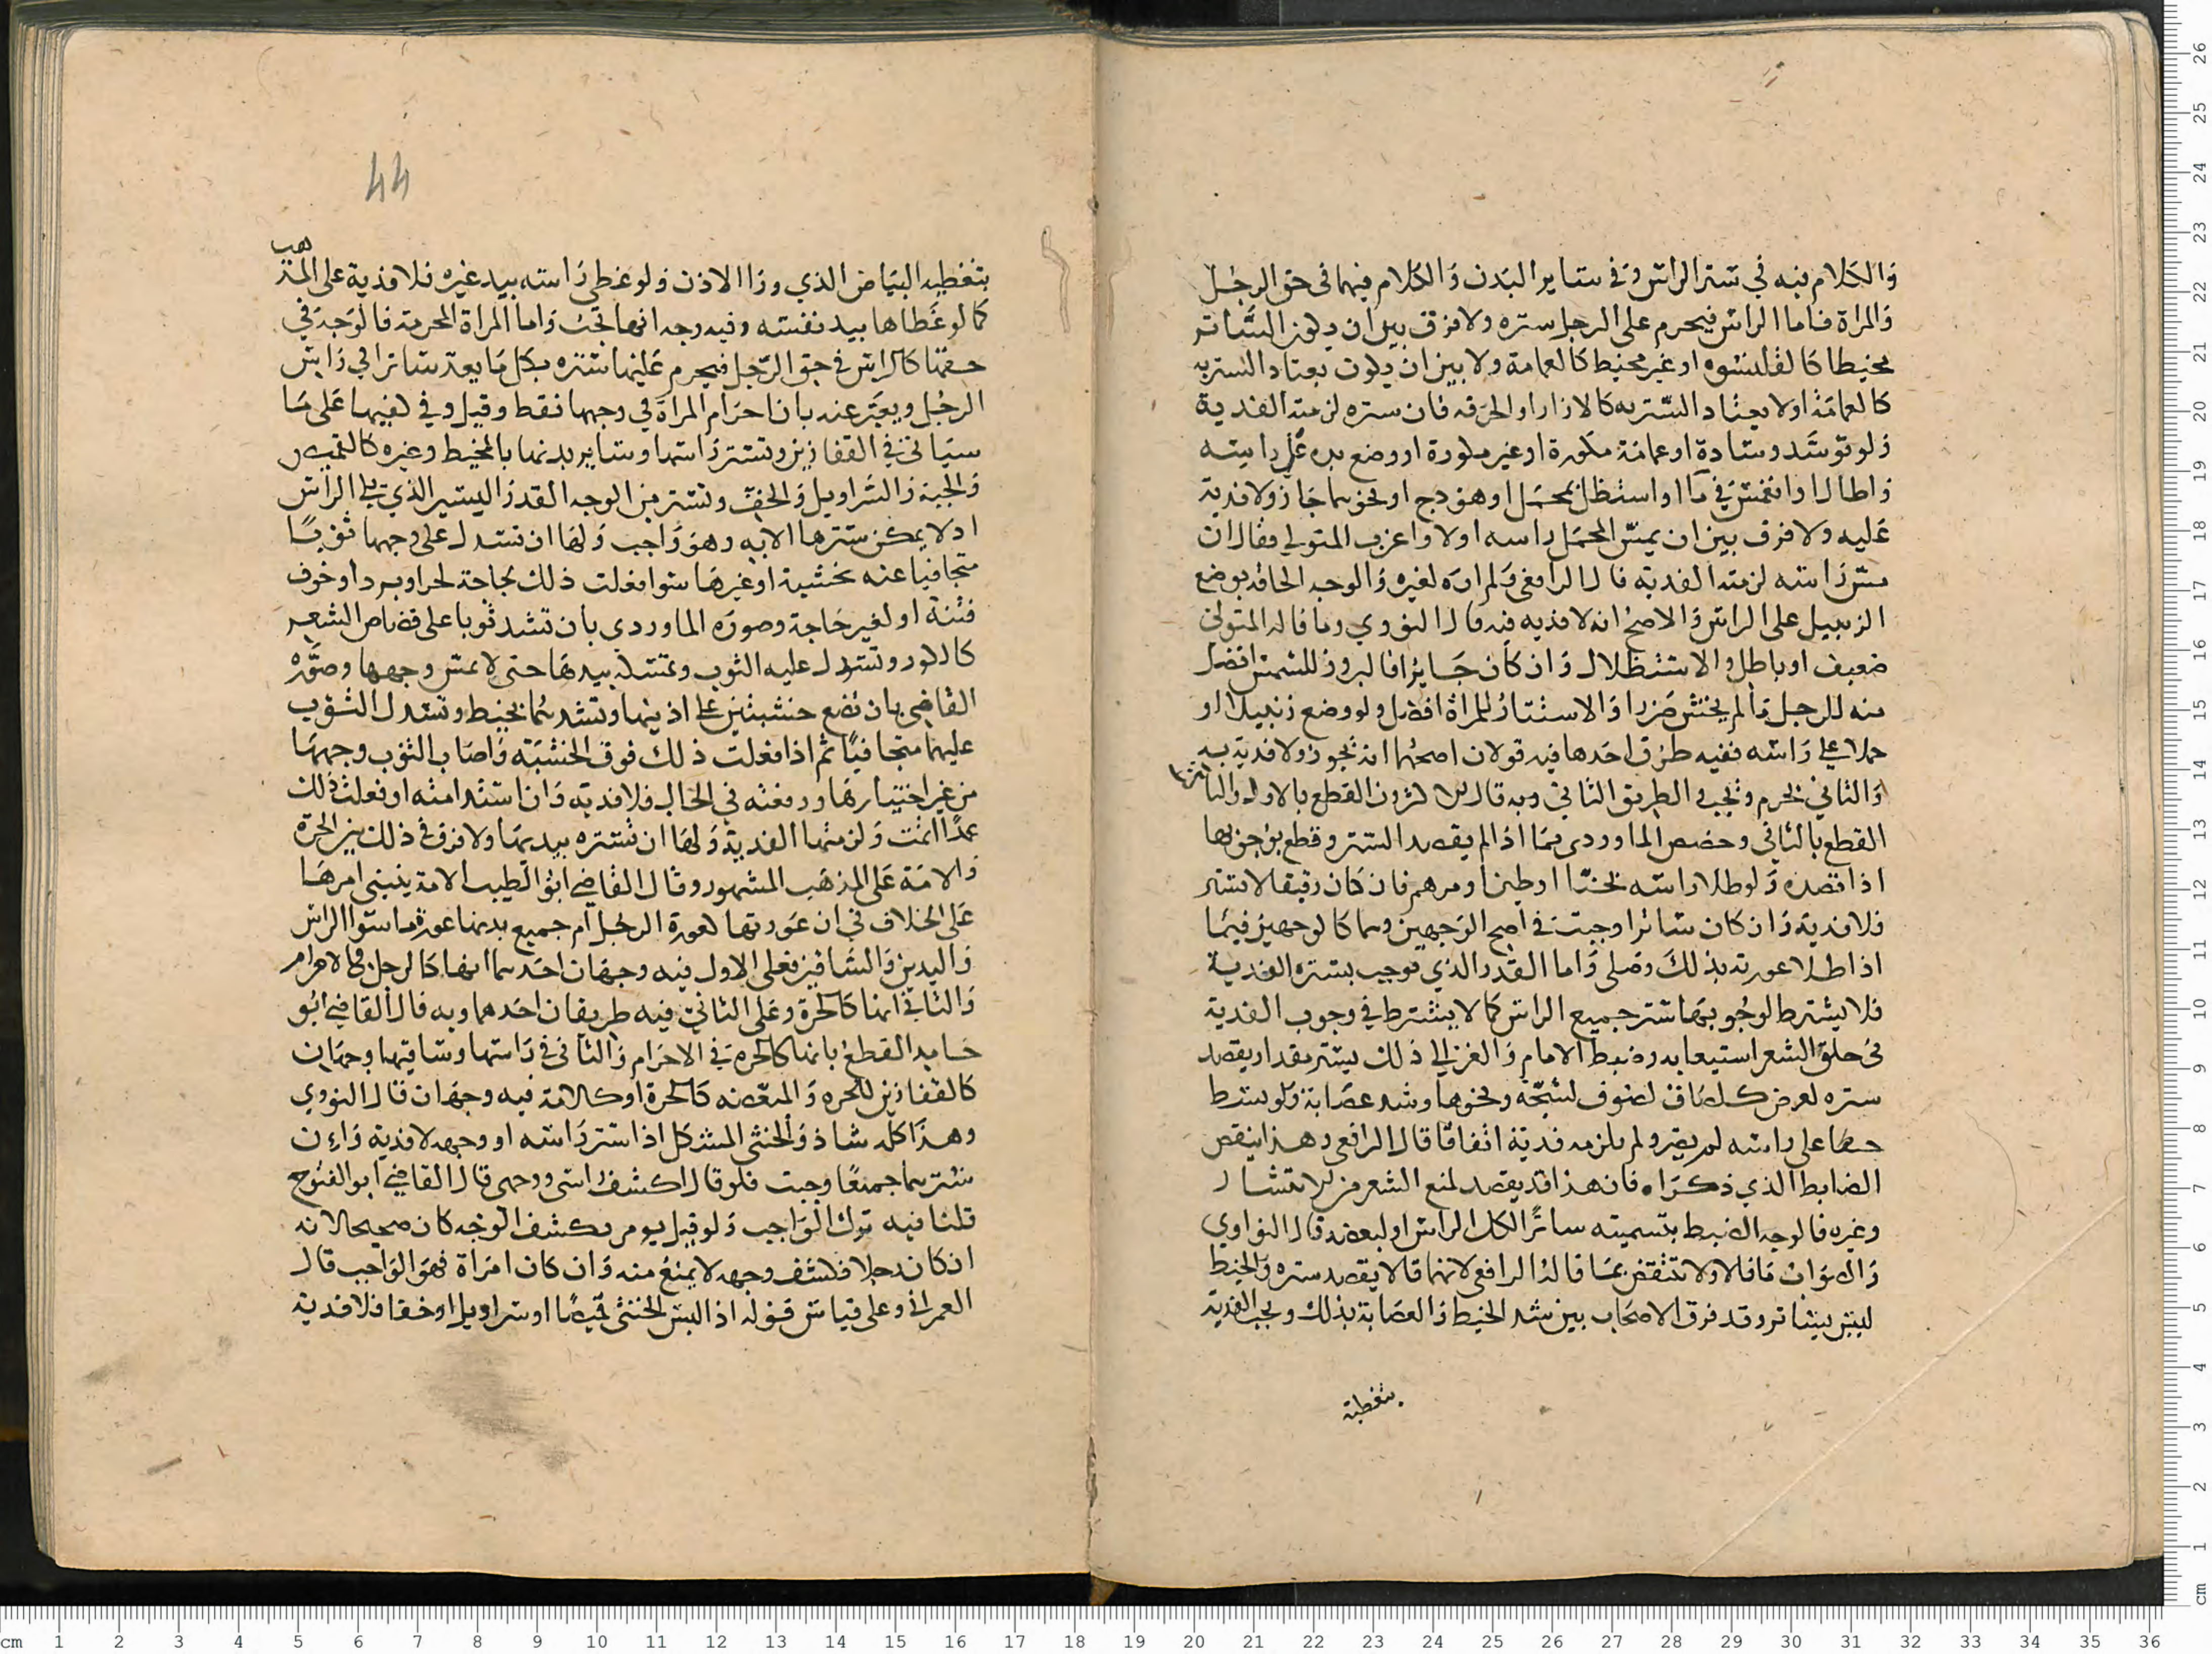 والكلام فيه في ستر الراس وفي ساير البدن والكلام فيهما في حق الرجل
والمراة فاما الراس فيحرم على الرجل ستره ولا فرق بين ان يكون الساتر
مخيطا كالقلنسوه او غير مخيط كالعمامة ولا بين ان يكون يعتاد الستر به
كالعمامة او لا يعتاد الستر به كالازار او الخرقه فان ستره لزمته الفدية
ولو توسد وسادة او عمامة مكورة او غير مكورة او وضع يده على راسه
واطال او انغمس في ما او استظل بمحمل او هودج او نحوهما جاز ولا فدية
عليه ولا فرق بين ان يمس المحمل راسه اولا واغرب المتولي فقال ان
مس راسه لزمته الفديه قال الرافعي ولم اره لغيره والوجه الحاقه بوضع
الزنبيل على الراس والاصح انه لا فديه فيه قال النووي وما قاله المتولي
ضعيف او باطل والاستظلال وان كان جايزا فالبروز للشمس افضل
منه للرجل ما لم يخش ضررا والاستتار للمراة افضل ولو وضع زنبيلا او
حملا على راسه ففيه طرق احدها فيه قولان اصحهما انه يجوز ولا فدية به
والثاني يحرم وتجب والطريق الثاني وبه قال الاكثرون القطع بالاول والثالث
القطع بالثاني وخصص الماوردي بما اذا لم يقصد الستر وقطع بوجوبها
اذا قصده ولو طلا راسه بحنا او طين او مرهم فان كان رقيقا لا يستر
فلا فدية وان كان ساترا وجبت في اصح الوجهين وهما كالوجهين فيما
اذا طلا عورته بذلك وصلى واما القدر الذي توجب بستره الفدية
فلا يشترط لوجوبها ستر جميع الراس كما لا يشترط في وجوب الفدية
في حلق الشعر استيعابه وضبط الامام والغزالي ذلك بستر مقدار يقصد
ستره لغرض كالصاق لصوف لشجة ونحوها وشد عصابة ولو شد
خيطا على راسه لم يضر ولم يلزمه فدية اتفاقا قال الرافعي وهذا ينقض
الضابط الذي ذكراه فان هذا قد يقصد لمنع الشعر من الانتشار
وغيره فالوجه الضبط بتسميته ساترًا لكل الراس او لبعضه قال النواوي
والصواب ما قالاه ولا تنتقض بما قاله الرافعي لانهما قالا يقصد ستره والخيط
ليس بساتر وقد فرق الاصحاب بين شد الخيط والعصابة بذلك وتجب الفدية
بتغطية
44
بتغطيه البياض الذي ورا الاذن ولو غطى راسه بيد غيره فلا فدية على المذهب
كما لو غطاها بيد نفسه وفيه وجه انها تجب واما المراة المحرمة فالوجه في
حقها كالراس في حق الرجل فيحرم عليها ستره بكل ما يعد ساترا في راس
الرجل ويعبر عنه بان احرام المراة في وجهها فقط وقيل وفي كفيها على ما
سياتي في القفازين وتستر راسها وساير بدنها بالمخيط وغيره كالقميص
والجبة والسراويل والخف وتستر من الوجه القدر اليسير الذي يلي الراس
اذ لا يمكن سترها الا به وهو واجب ولها ان تسدل على وجهها ثوبًا
متجافيا عنه بخشبة او غيرها سوا فعلت ذلك لحاجة لحر او برد او خوف
فتنة او لغير حاجة وصوره الماوردي بان تشد ثوبا على قصاص الشعر
كالكور وتسدل عليه الثوب وتمسكه بيدها حتى لا يمس وجهها وصوره
القاضي بان تضع خشبتين على اذنيها وتشدهما بخيط وتسدل الثوب
عليهما متجافيًا ثم اذا فعلت ذلك فوق الخشبة واصاب الثوب وجهها
من غير اختيارها ورفعته في الحال فلا فديه وان استدامته او فعلت ذلك
عمدًا اثمت ولزمتها الفدية ولها ان تستره بيديها ولا فرق في ذلك بين الحرة
والامة على المذهب المشهور وقال القاضي ابو الطيب الامة ينبني امرها
على الخلاف في ان عورتها كعورة الرجل ام جميع بدنها عورة ما سوا الراس
واليدين والساقين فعلى الاول فيه وجهان احدهما انها كالرجل في الاحرام
والثاني انها كالحرة وعلى الثاني فيه طريقان احدهما وبه قال القاضي ابو
حامد القطع بانها كالحره في الاحرام والثاني في راسها وساقيها وجهان
كالقفازين للحره والمبعضه كالحرة او كالامة فيه وجهان قال النووي
وهذا كله شاذ والخنثى المشكل اذا ستر راسه او وجهه لا فدية وان
سترهما جميعًا وجبت فلو قال اكشف راسي ووجهي قال القاضي ابو الفتوح
قلنا فيه ترك الواجب ولو قيل يومر بكشف الوجه كان صحيحا لانه
ان كان رجلا فكشف وجهه لا يمنع منه وان كان امراة فهو الواجب قال
العمراني وعلى قياس قوله اذا لبس الخنثى قميصًا او سراويل او خفا فلا فدية